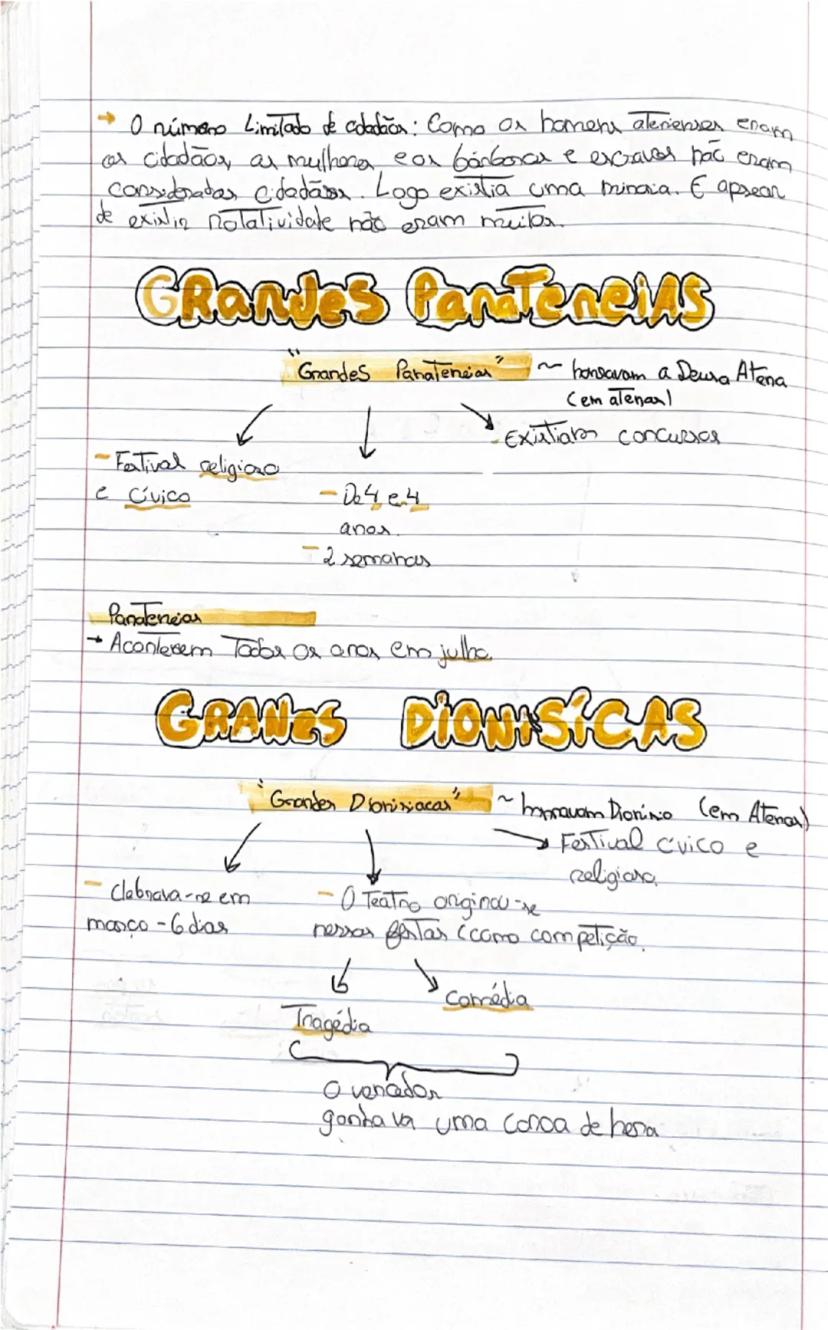 → O número Limitado de cidadãos: Como os homens atenienses eram
os cidadãos, as mulheres e os bárbaros e escravos não eram
considerados cidadãos. Logo existia uma minoria. E apesar
de existir rotatividade não eram muitos.
GRANDES PANATENEIAS
"Grandes Panateneias" ~ honravam a Deusa Atena
(em atenas)
- Existiam concursos
- Festival religioso
e Cívico
- De 4 e 4
anos.
- 2 semanas
Panateneias
→ Acontecem Todos os anos em julho
GRANES DIONISÍCAS
"Grandes Dionisiacas" ~ honravam Dionísio (em Atenas)
Festival cívico e
religioso.
- Clebrava-se em
março - 6 dias
- O Teatro originou-se
nessas festas (como competição.
Tragédia
Comédia
O vencedor
ganhava uma coroa de hera